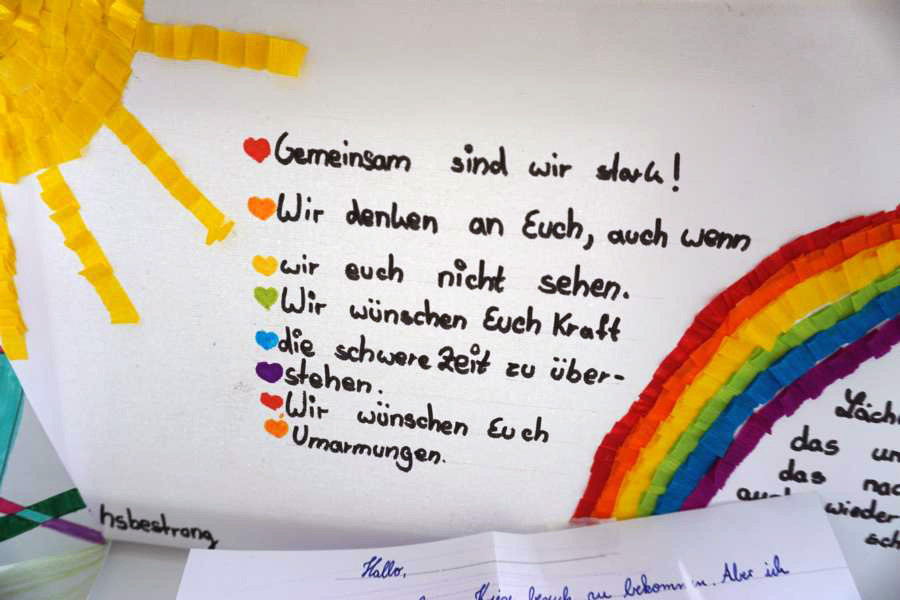 Gemeinsam sind wir stark!
Wir denken an Euch, auch wenn
wir euch nicht sehen.
Wir wünschen Euch Kraft
die schwere Zeit zu über-
stehen.
Wir wünschen Euch
Umarmungen.
das
das
wieder
hsbestrang
Hallo,
zu bekommen. Aber ich